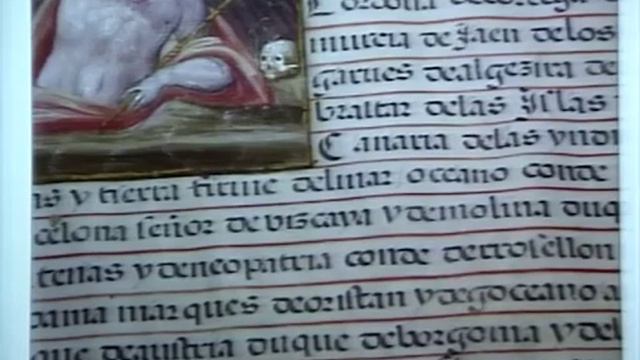 Cordova de corcega de
murcia de Jaen delos
garves de algezira de
braltar delas Yslas
Canaria delas yndi
as y tierra firme del mar oceano conde
celona señor de vizcaya y de molina duq
tenas y de neopatria conde de rosellon
dania marques de oristan y de goceano a
que de austria duque de borgoña y de